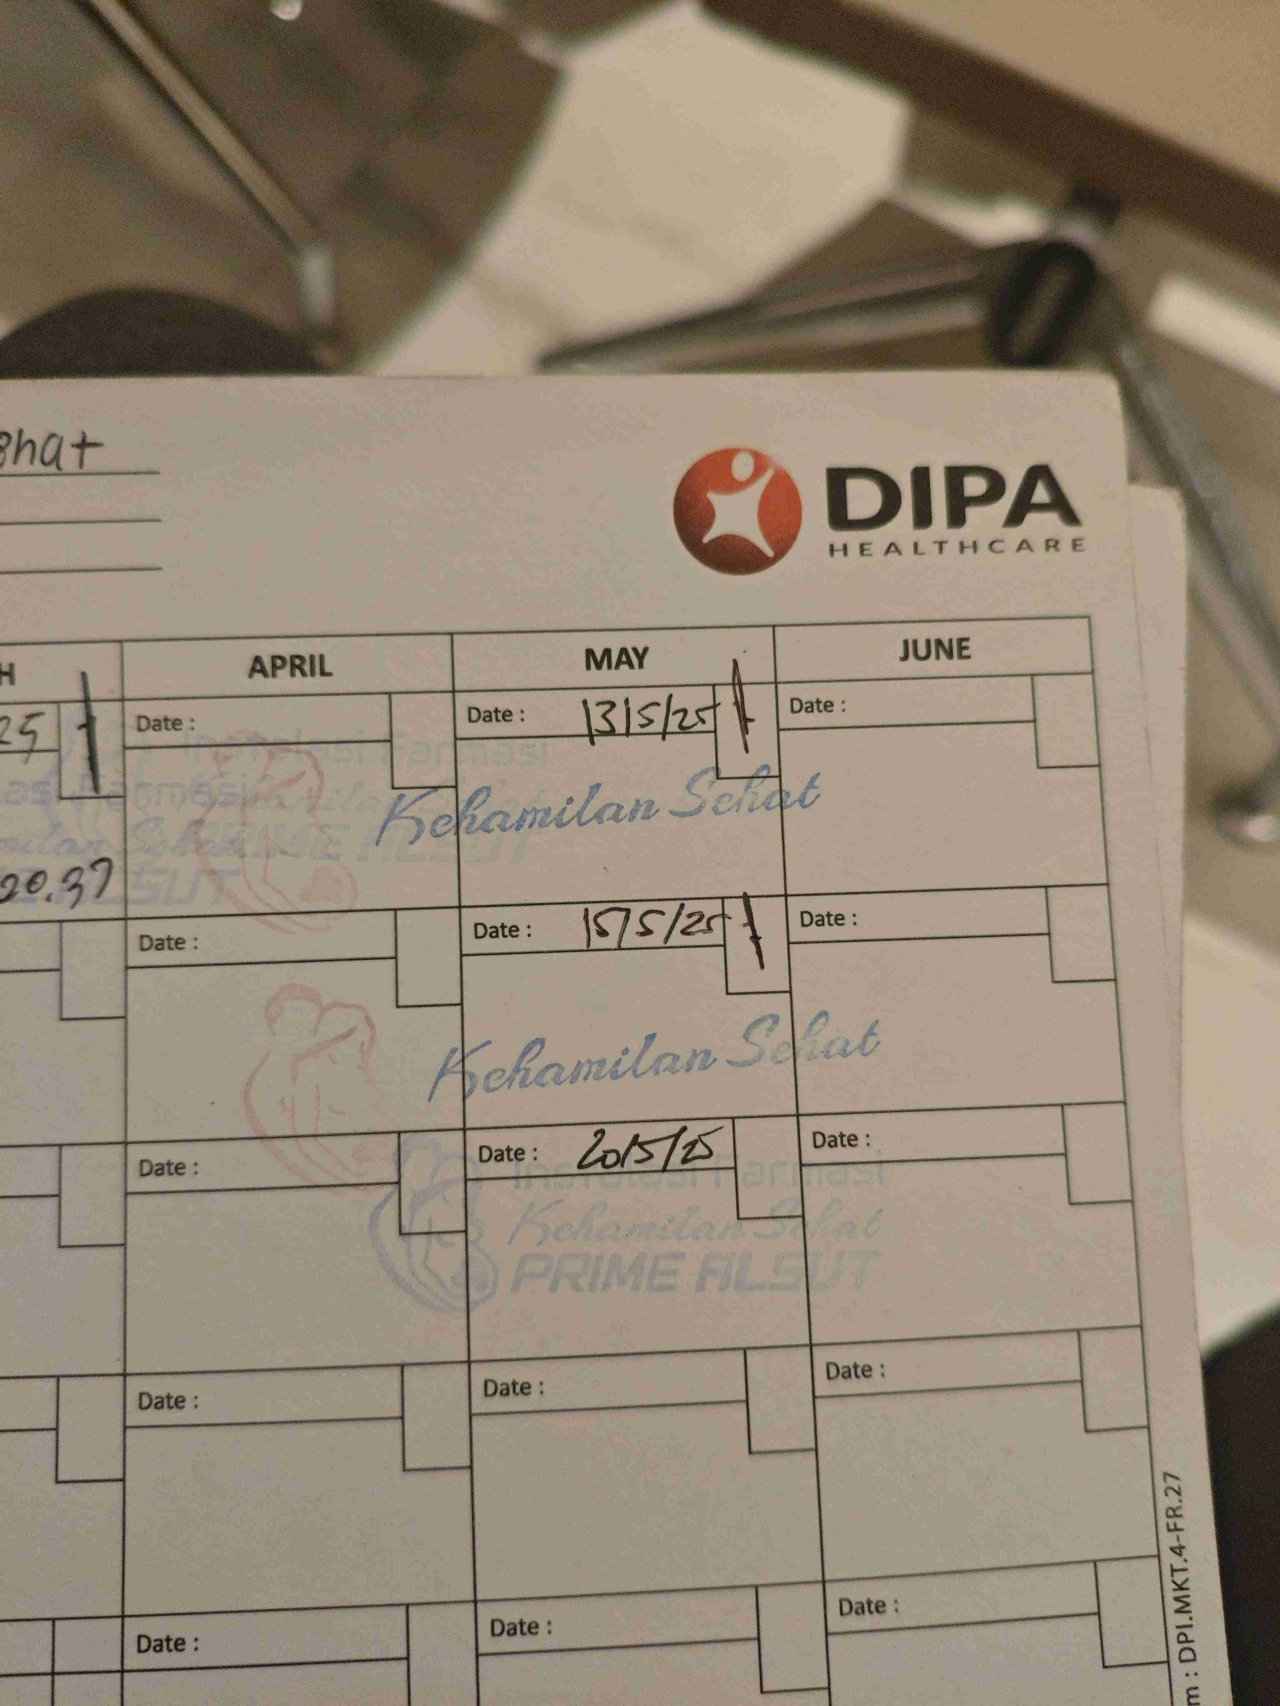 DIPA
HEALTHCARE
APRIL MAY JUNE
25 Date : Date : 13/5/25 Date :
Instalasi Farmasi
Kehamilan Sehat
PRIME ALSUT
20.37
Date : Date : 15/5/25 Date :
Kehamilan Sehat
Date : Date : 20/5/25 Date :
Instalasi Farmasi
Kehamilan Sehat
PRIME ALSUT
Date : Date : Date :
Date : Date : Date :
m : DPI.MKT.4-FR.27